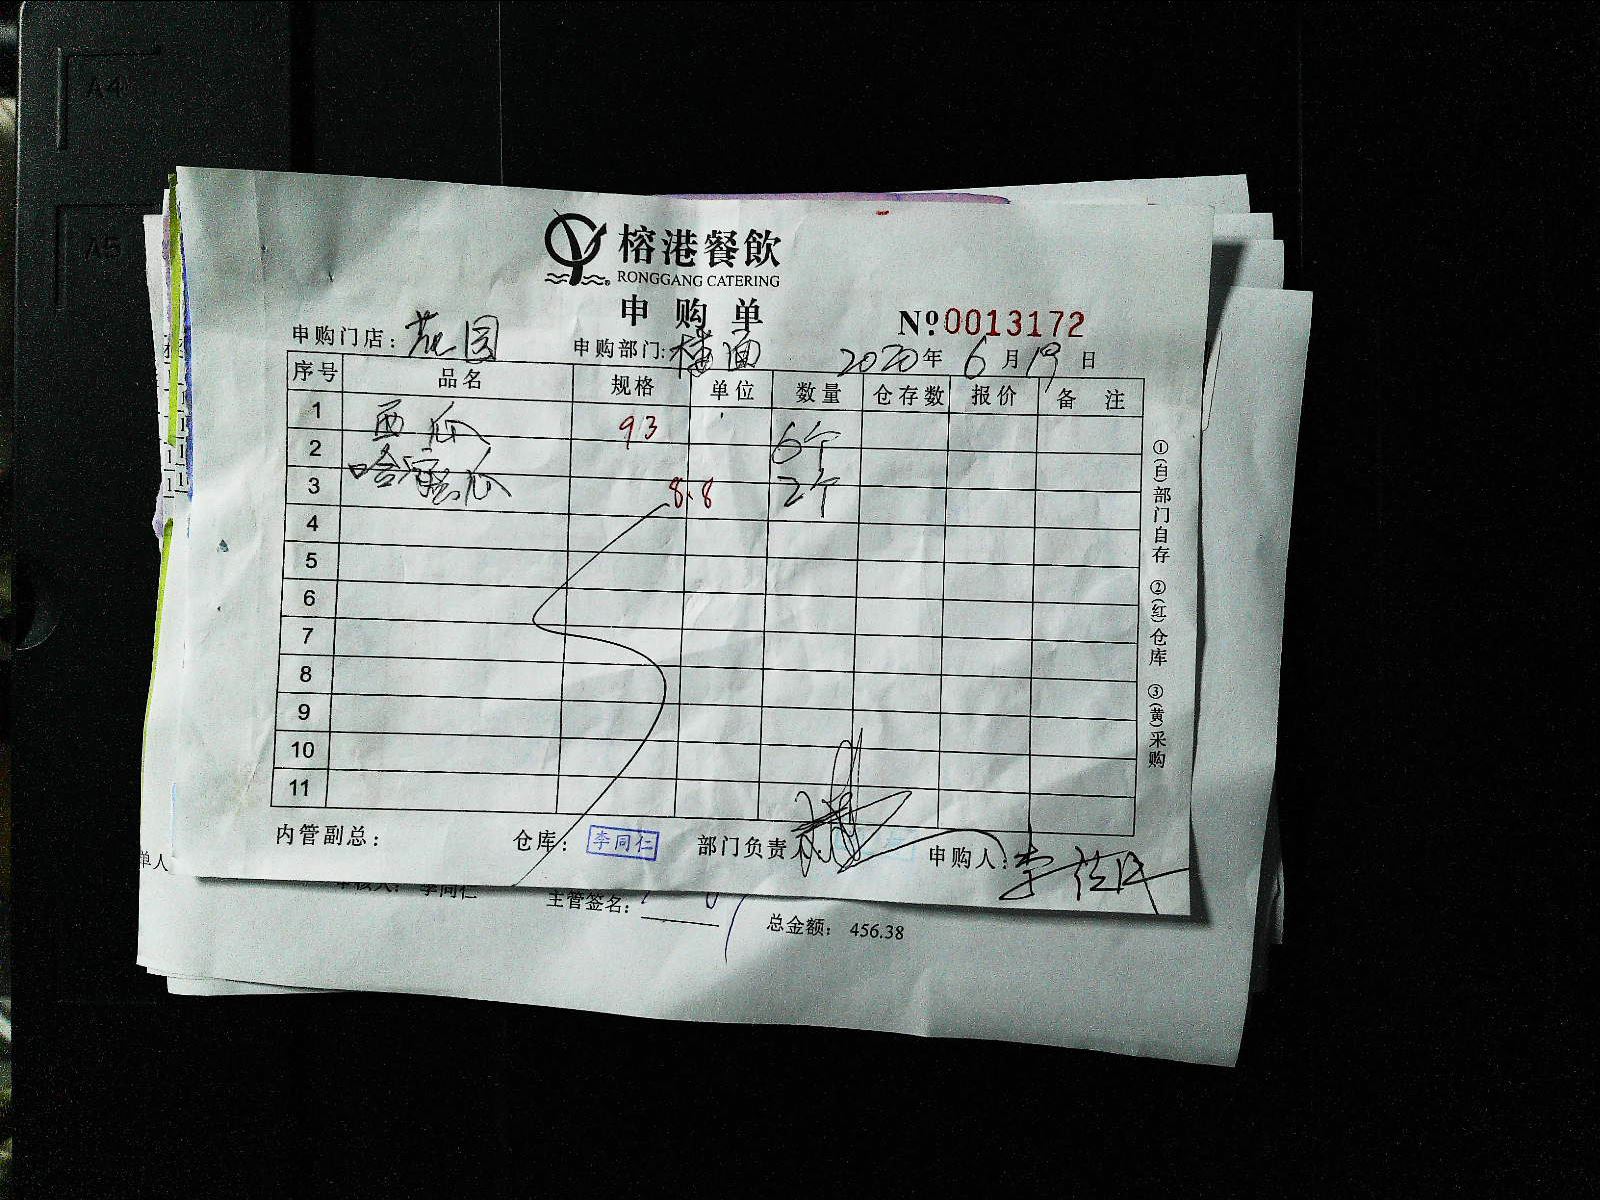 A4
A5
榕港餐飲
RONGGANG CATERING
申购单
№0013172
申购门店：花园 申购部门：楼面 2020年6月19日
序号 品名 规格 单位 数量 仓存数 报价 备注
1 西瓜 93 6个
2 哈密瓜 8.8 2个
3
4
5
6
7
8
9
10
11
①(白)部门自存 ②(红)仓库 ③(黄)采购
内管副总： 仓库：李同仁 部门负责人： 申购人：李
单人 审核人：李同仁 主管签名： 总金额：456.38